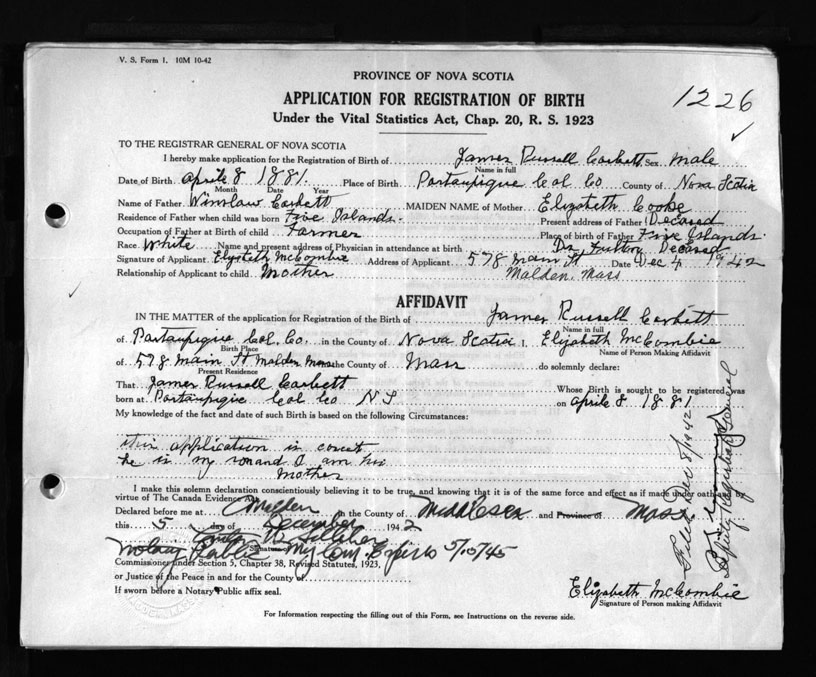 V. S. Form 1. 10M 10-42
PROVINCE OF NOVA SCOTIA
APPLICATION FOR REGISTRATION OF BIRTH
1226
Under the Vital Statistics Act, Chap. 20, R. S. 1923
TO THE REGISTRAR GENERAL OF NOVA SCOTIA
I hereby make application for the Registration of Birth of James Russell Corbett Sex Male
Name in full
Date of Birth april 8 1881. Place of Birth Portaupique Col Co County of Nova Scotia
Month Date Year
Name of Father Winslow Corbett MAIDEN NAME of Mother Elizabeth Cooke
Residence of Father when child was born Five Islands. Present address of Father Decased
Occupation of Father at Birth of child Farmer Place of birth of Father Five Islands.
Race White Name and present address of Physician in attendance at birth Dr. Fulton Decased
Signature of Applicant Elyzbeth McCombie Address of Applicant 578 Main St Date Dec 4 1942
Relationship of Applicant to child Mother Malden, Mass
AFFIDAVIT
IN THE MATTER of the application for Registration of the Birth of James Russell Corbett
Name in full
of Portaupique Col. Co. in the County of Nova Scotia I, Elizabeth McCombie
Birth Place Name of Person Making Affidavit
of 578 Main St Malden Mass the County of Mass do solemnly declare:
Present Residence
That James Russell Corbett Whose Birth is sought to be registered was
born at Portaupique Col Co N S on april 8 1881
My knowledge of the fact and date of such Birth is based on the following Circumstances:
this application is corect
he is my son and I am his
Mother
I make this solemn declaration conscientiously believing it to be true, and knowing that it is of the same force and effect as if made under oath and by
virtue of The Canada Evidence Act
Declared before me at Malden in the County of Middlesex and Province of Mass
this 5 day of December 1942
Notary Public Signature My Com. Expires 5/10/45
Commissioner under Section 5, Chapter 38, Revised Statutes, 1923,
or Justice of the Peace in and for the County of
If sworn before a Notary Public affix seal.
Elizabeth McCombie
Signature of Person making Affidavit
For Information respecting the filling out of this Form, see Instructions on the reverse side.
Filed Dec 8/1942
Deputy Registrar General